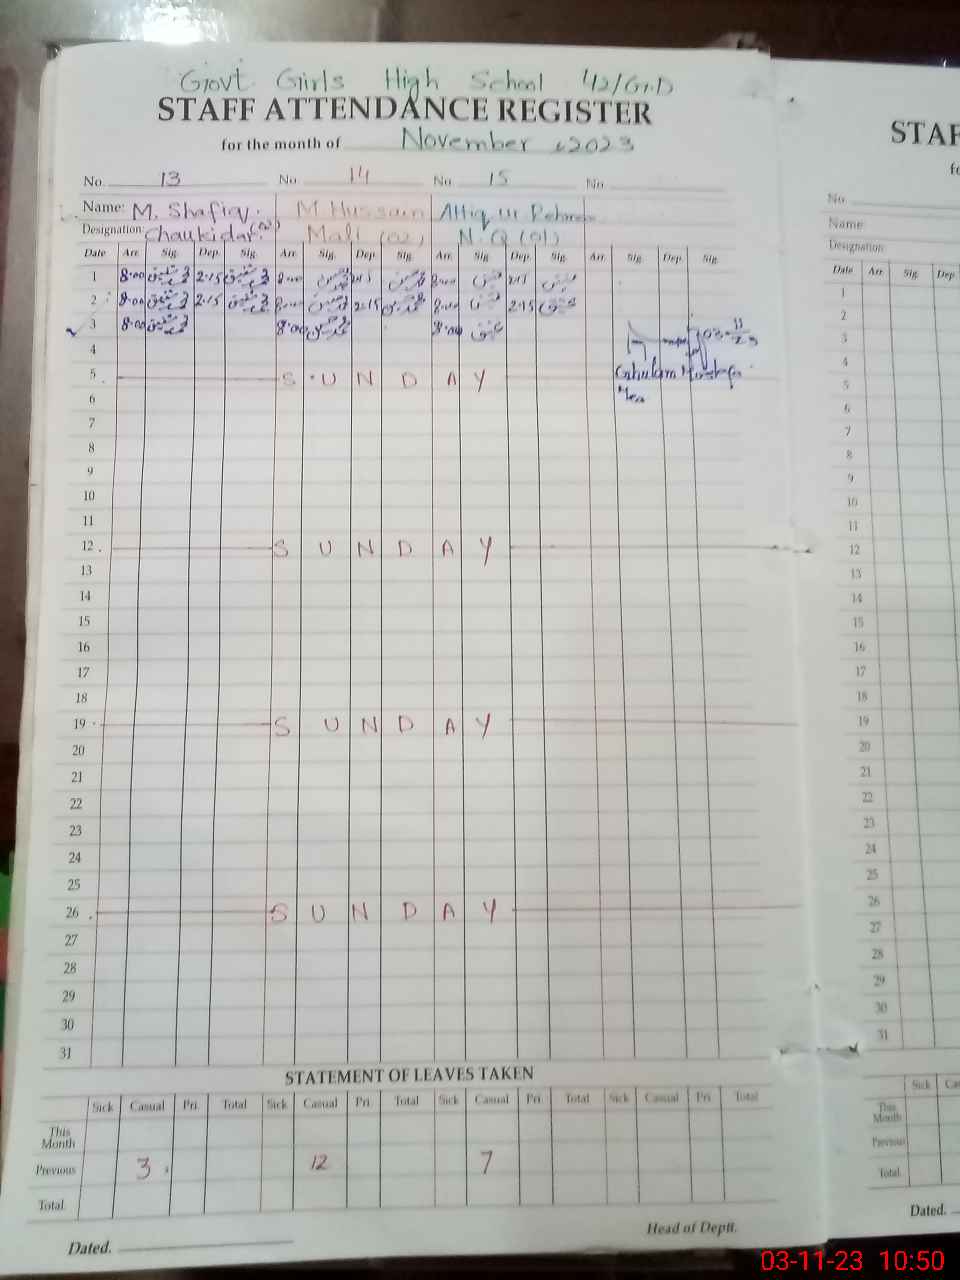 Govt Girls High School 42/G.D
STAFF ATTENDANCE REGISTER
for the month of November 2023
No. 13 No. 14 No. 15 No.
Name: M. Shafiq. M Hussain Attiq ur Rehman
Designation: Chaukidar (02) Mali (02) N.Q (01)
Date Arr. Sig. Dep. Sig. Arr. Sig. Dep. Sig. Arr. Sig. Dep. Sig. Arr. Sig. Dep. Sig.
1 8:00 2:15 8:00 8:00
2 8:00 2:15 8:00 2:15 8:00 2:15
3 8:00 8:00 8:00 03-11-23
4 Ghulam Mustafa
5 SUNDAY
6 Mea
7
8
9
10
11
12 SUNDAY
13
14
15
16
17
18
19 SUNDAY
20
21
22
23
24
25
26 SUNDAY
27
28
29
30
31
STATEMENT OF LEAVES TAKEN
Sick Casual Pri. Total Sick Casual Pri. Total Sick Casual Pri. Total Sick Casual Pri. Total
This Month
Previous 3 12 7
Total
Dated. Head of Deptt.
STAF
No.
Name:
Designation:
Date Arr. Sig. Dep.
1
2
3
4
5
6
7
8
9
10
11
12
13
14
15
16
17
18
19
20
21
22
23
24
25
26
27
28
29
30
31
Sick Ca
This Month
Previous
Total
Dated.
03-11-23 10:50